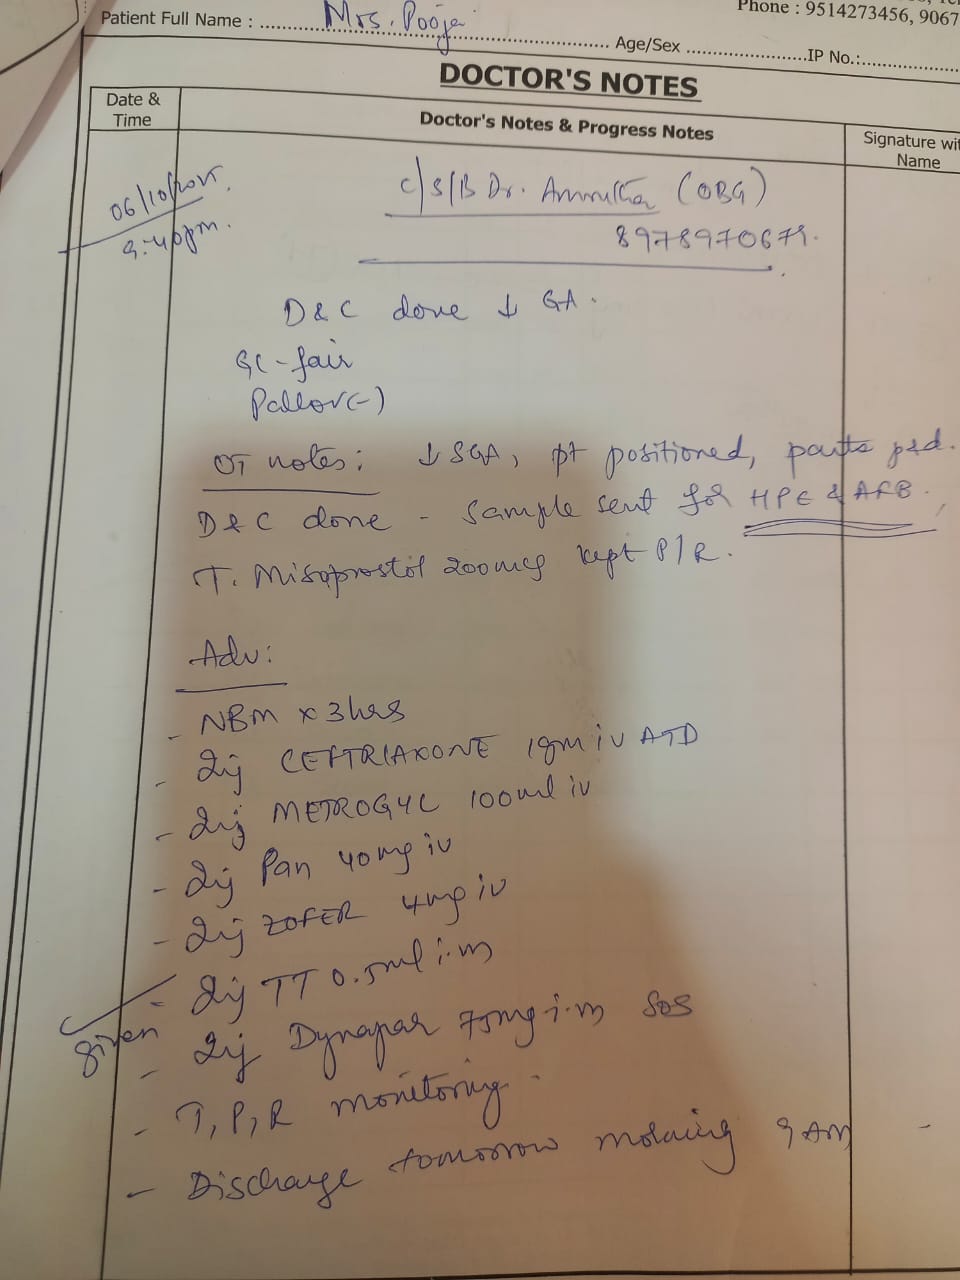 Phone : 9514273456, 9067
Patient Full Name : Mrs. Pooja Age/Sex IP No.:
DOCTOR'S NOTES
Date & Time
Doctor's Notes & Progress Notes
Signature wit
Name
06/10/
9:40pm.
C/S/B Dr. (OBG)
8978970679.
D&C done ↓ GA.
GC - fair
Pallor(-)
OT notes: ↓ SGA, pt positioned, parts
D&C done - sample sent for HPE & AFB.
T. Misoprostol 200mcg kept P/R.
Adv:
- NBM x 3hrs
- Inj CEFTRIAXONE 1gm iv ATD
- Inj METROGYL 100ml iv
- Inj Pan 40mg iv
- Inj ZOFER 4mg iv
- Inj TT 0.5ml i.m
given
- Inj Dynapar 75mg i.m SOS
- T, P, R monitoring.
- Discharge tomorrow morning 9 AM